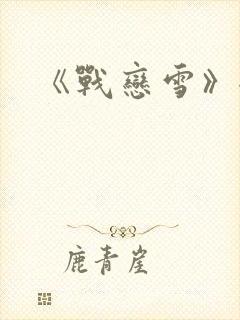 《戰戀雪》
鹿青崖